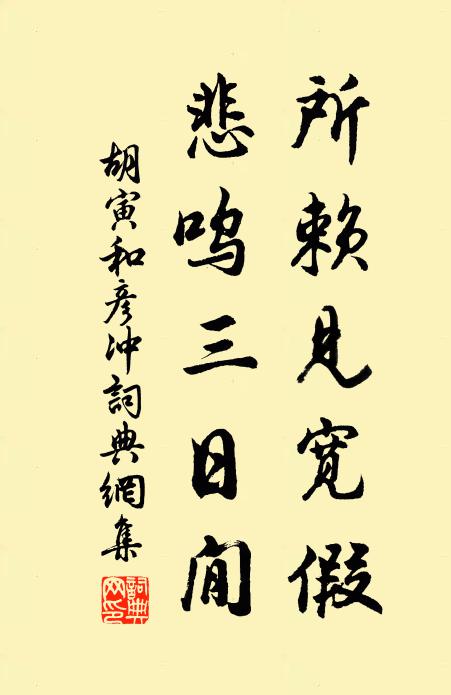 所赖见宽假
悲鸣三日间
胡寅和彦冲詞典網集
詞典网印